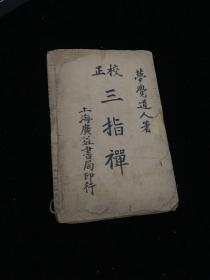 夢覺道人著
校正
三指禪
上海廣益書局印行